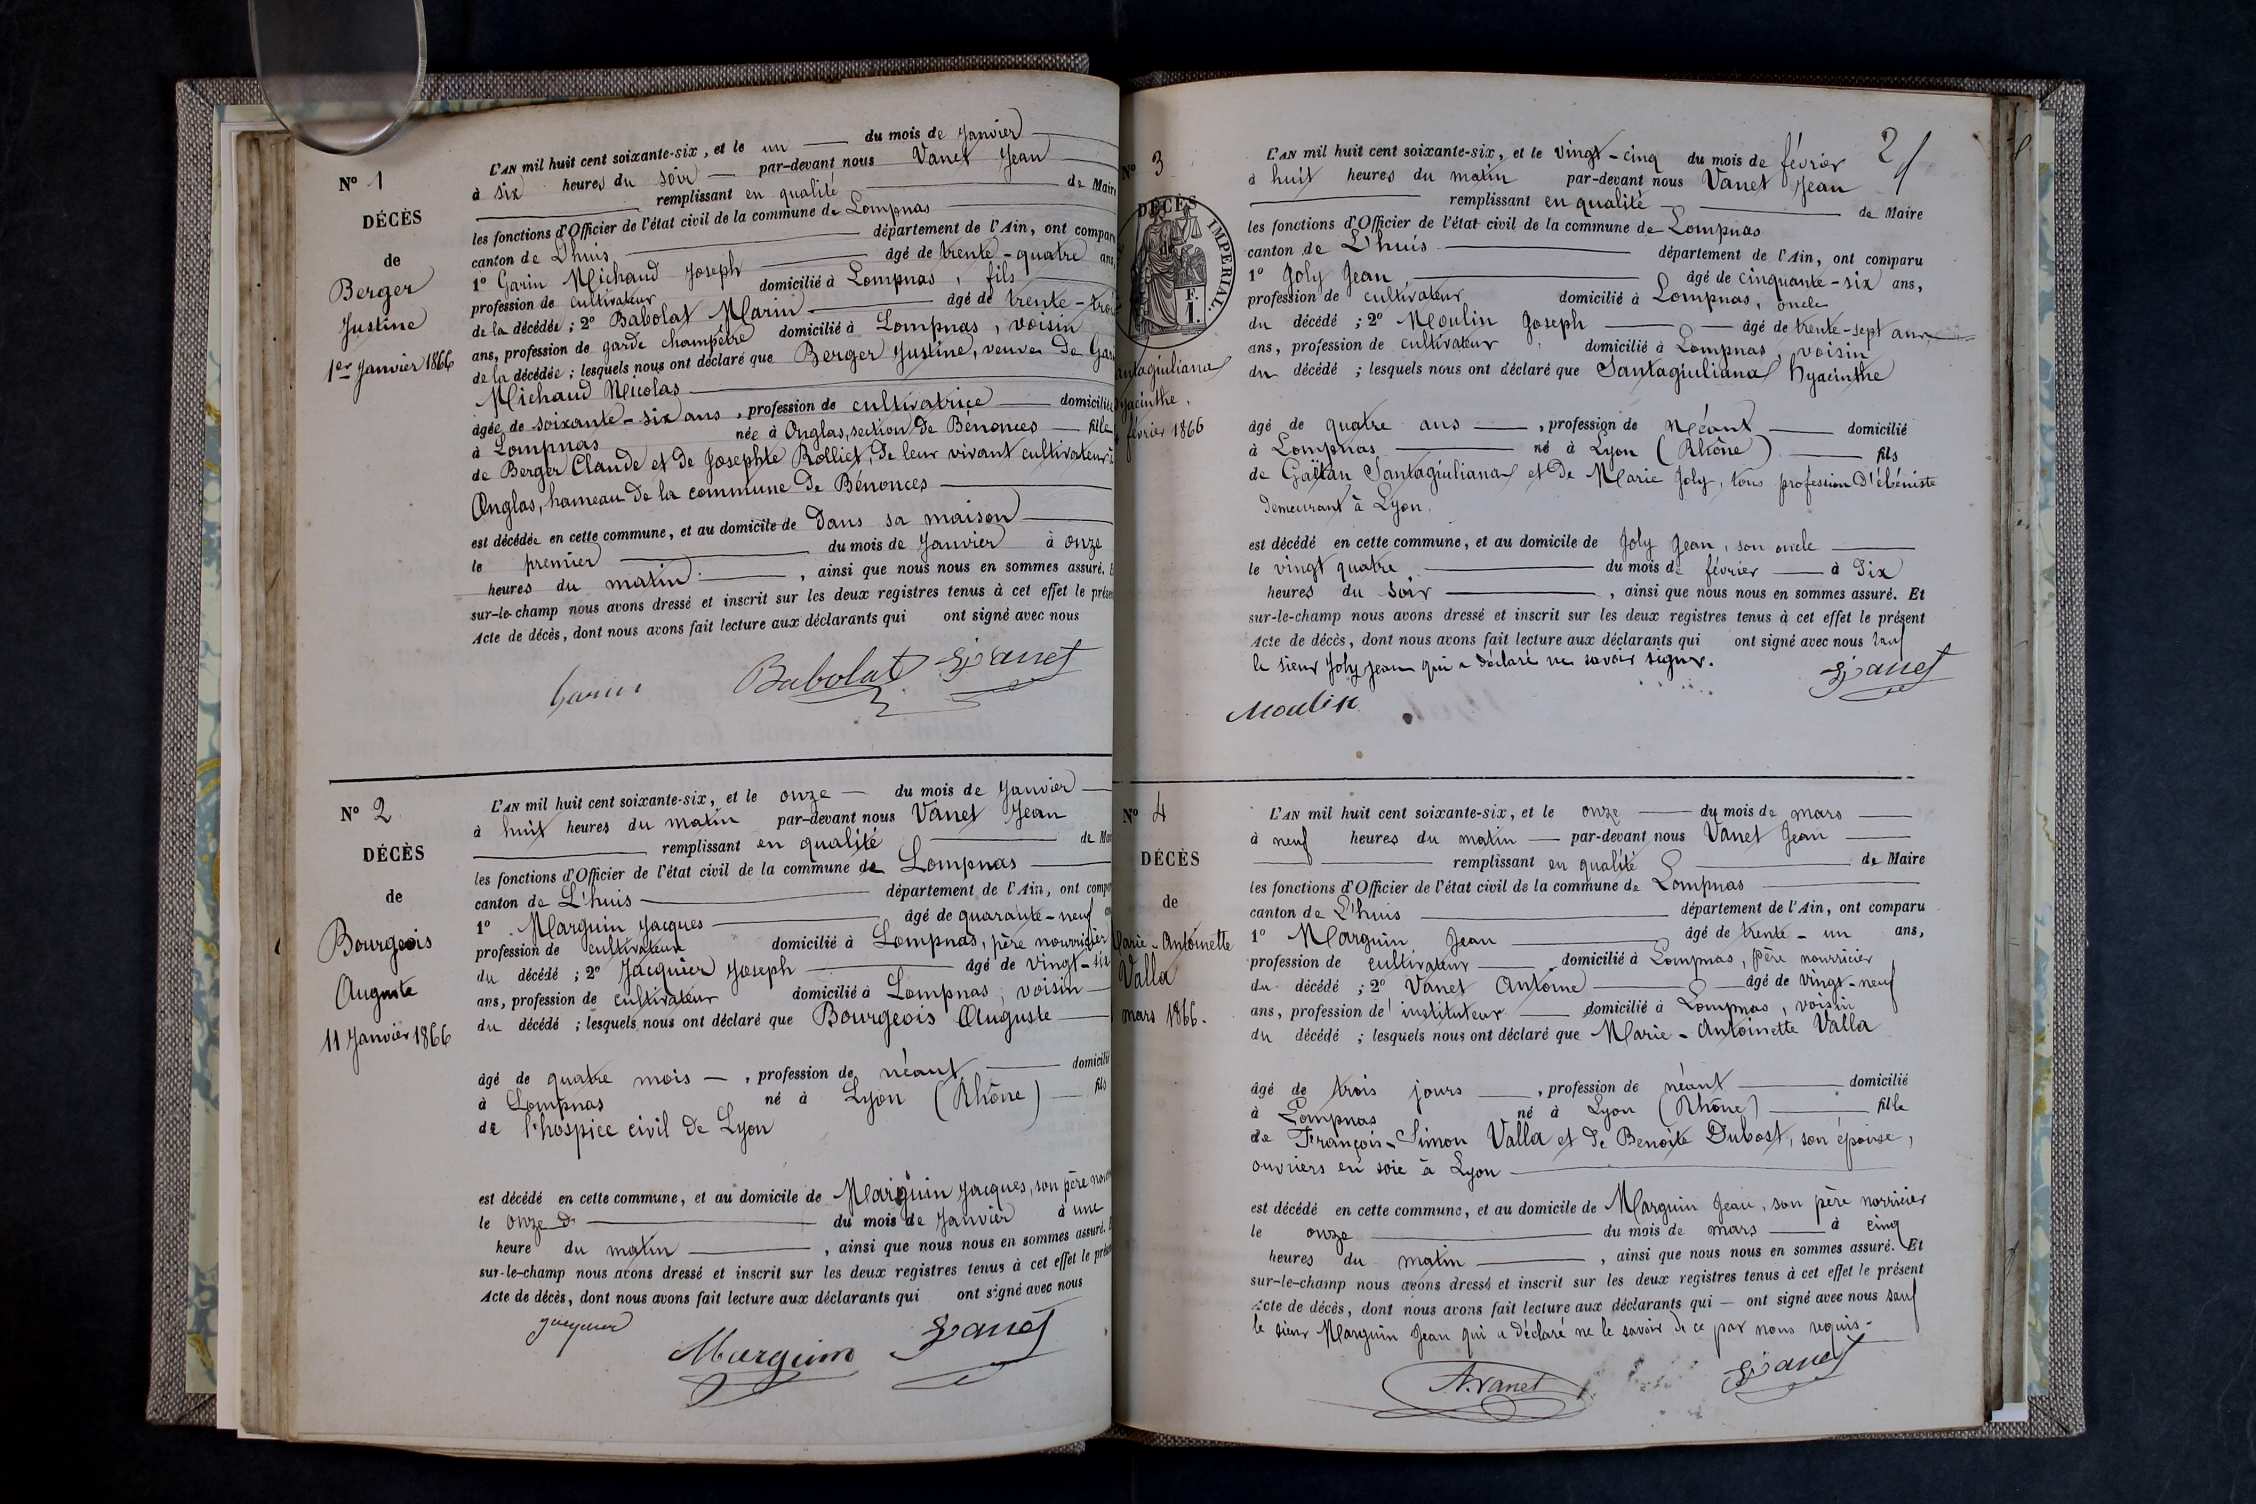 N° 1
DÉCÈS
de
Berger
Justine
1er Janvier 1866
L'AN mil huit cent soixante-six, et le un du mois de Janvier
à six heures du soir par-devant nous Vanet Jean
remplissant en qualité de Maire
les fonctions d'Officier de l'état civil de la commune de Lompnas
canton de L'huis département de l'Ain, ont compar
1° Garin Michaud Joseph âgé de trente-quatre ans,
profession de cultivateur domicilié à Lompnas, fils
de la décédée; 2° Babolat Marin âgé de trente-trois
ans, profession de garde champêtre domicilié à Lompnas, voisin
de la décédée; lesquels nous ont déclaré que Berger Justine, veuve de Gar
Michaud Nicolas
âgée de soixante-six ans, profession de cultivatrice domiciliée
à Lompnas née à Onglas, section de Bénonces fille
de Berger Claude et de Josephte Rolliet, de leur vivant cultivateur à
Onglas, hameau de la commune de Bénonces
est décédée en cette commune, et au domicile de dans sa maison
le premier du mois de Janvier à onze
heures du matin, ainsi que nous nous en sommes assuré. E
sur-le-champ nous avons dressé et inscrit sur les deux registres tenus à cet effet le prése
Acte de décès, dont nous avons fait lecture aux déclarants qui ont signé avec nous
Garin Babolat Jx Vanet
N° 2
DÉCÈS
de
Bourgeois
Auguste
11 Janvier 1866
L'AN mil huit cent soixante-six, et le onze du mois de Janvier
à huit heures du matin par-devant nous Vanet Jean
remplissant en qualité de Mai
les fonctions d'Officier de l'état civil de la commune de Lompnas
canton de L'huis département de l'Ain, ont compa
1° Marguin Jacques âgé de quarante-neuf an
profession de cultivateur domicilié à Lompnas, père nourricier
du décédé; 2° Jacquier Joseph âgé de vingt-six
ans, profession de cultivateur domicilié à Lompnas, voisin
du décédé; lesquels nous ont déclaré que Bourgeois Auguste
âgé de quatre mois, profession de néant domicilié
à Lompnas né à Lyon (Rhône) fils
de l'hospice civil de Lyon
est décédé en cette commune, et au domicile de Marguin Jacques, son père nour
le onze du mois de Janvier à une
heure du matin, ainsi que nous nous en sommes assuré. E
sur-le-champ nous avons dressé et inscrit sur les deux registres tenus à cet effet le prése
Acte de décès, dont nous avons fait lecture aux déclarants qui ont signé avec nous
Jacquier
Marguin Jx Vanet
2
N° 3
DÉCÈS
de
IMPERIAL.
F.
1.
antagiuliana
yacinthe.
février 1866
L'AN mil huit cent soixante-six, et le vingt-cinq du mois de février
à huit heures du matin par-devant nous Vanet Jean
remplissant en qualité de Maire
les fonctions d'Officier de l'état civil de la commune de Lompnas
canton de L'huis département de l'Ain, ont comparu
1° Joly Jean âgé de cinquante-six ans,
profession de cultivateur domicilié à Lompnas, oncle
du décédé; 2° Moulin Joseph âgé de trente-sept ans
ans, profession de cultivateur domicilié à Lompnas, voisin
du décédé; lesquels nous ont déclaré que Santagiuliana hyacinthe
âgé de quatre ans, profession de Néant domicilié
à Lompnas né à Lyon (Rhône) fils
de Gaïtan Santagiuliana et de Marie Joly, tous profession d'ébéniste
demeurant à Lyon.
est décédé en cette commune, et au domicile de Joly Jean, son oncle
le vingt quatre du mois de février à dix
heures du soir, ainsi que nous nous en sommes assuré. Et
sur-le-champ nous avons dressé et inscrit sur les deux registres tenus à cet effet le présent
Acte de décès, dont nous avons fait lecture aux déclarants qui ont signé avec nous sauf
le sieur Joly Jean qui a déclaré ne savoir signer.
Jx Vanet
Moulin
N° 4
DÉCÈS
de
Marie-Antoinette
Valla
mars 1866.
L'AN mil huit cent soixante-six, et le onze du mois de mars
à neuf heures du matin par-devant nous Vanet Jean
remplissant en qualité de Maire
les fonctions d'Officier de l'état civil de la commune de Lompnas
canton de L'huis département de l'Ain, ont comparu
1° Marguin Jean âgé de trente-un ans,
profession de cultivateur domicilié à Lompnas, père nourricier
du décédé; 2° Vanet Antoine âgé de vingt-neuf
ans, profession de instituteur domicilié à Lompnas, voisin
du décédé; lesquels nous ont déclaré que Marie-Antoinette Valla
âgé de trois jours, profession de néant domicilié
à Lompnas né à Lyon (Rhône) fille
de François-Simon Valla et de Benoite Dubost, son épouse,
ouvriers en soie à Lyon
est décédé en cette commune, et au domicile de Marguin Jean, son père norricier
le onze du mois de mars à cinq
heures du matin, ainsi que nous nous en sommes assuré. Et
sur-le-champ nous avons dressé et inscrit sur les deux registres tenus à cet effet le présent
Acte de décès, dont nous avons fait lecture aux déclarants qui — ont signé avec nous sauf
le sieur Marguin Jean qui a déclaré ne le savoir de ce par nous requis.
A. Vanet Jx Vanet